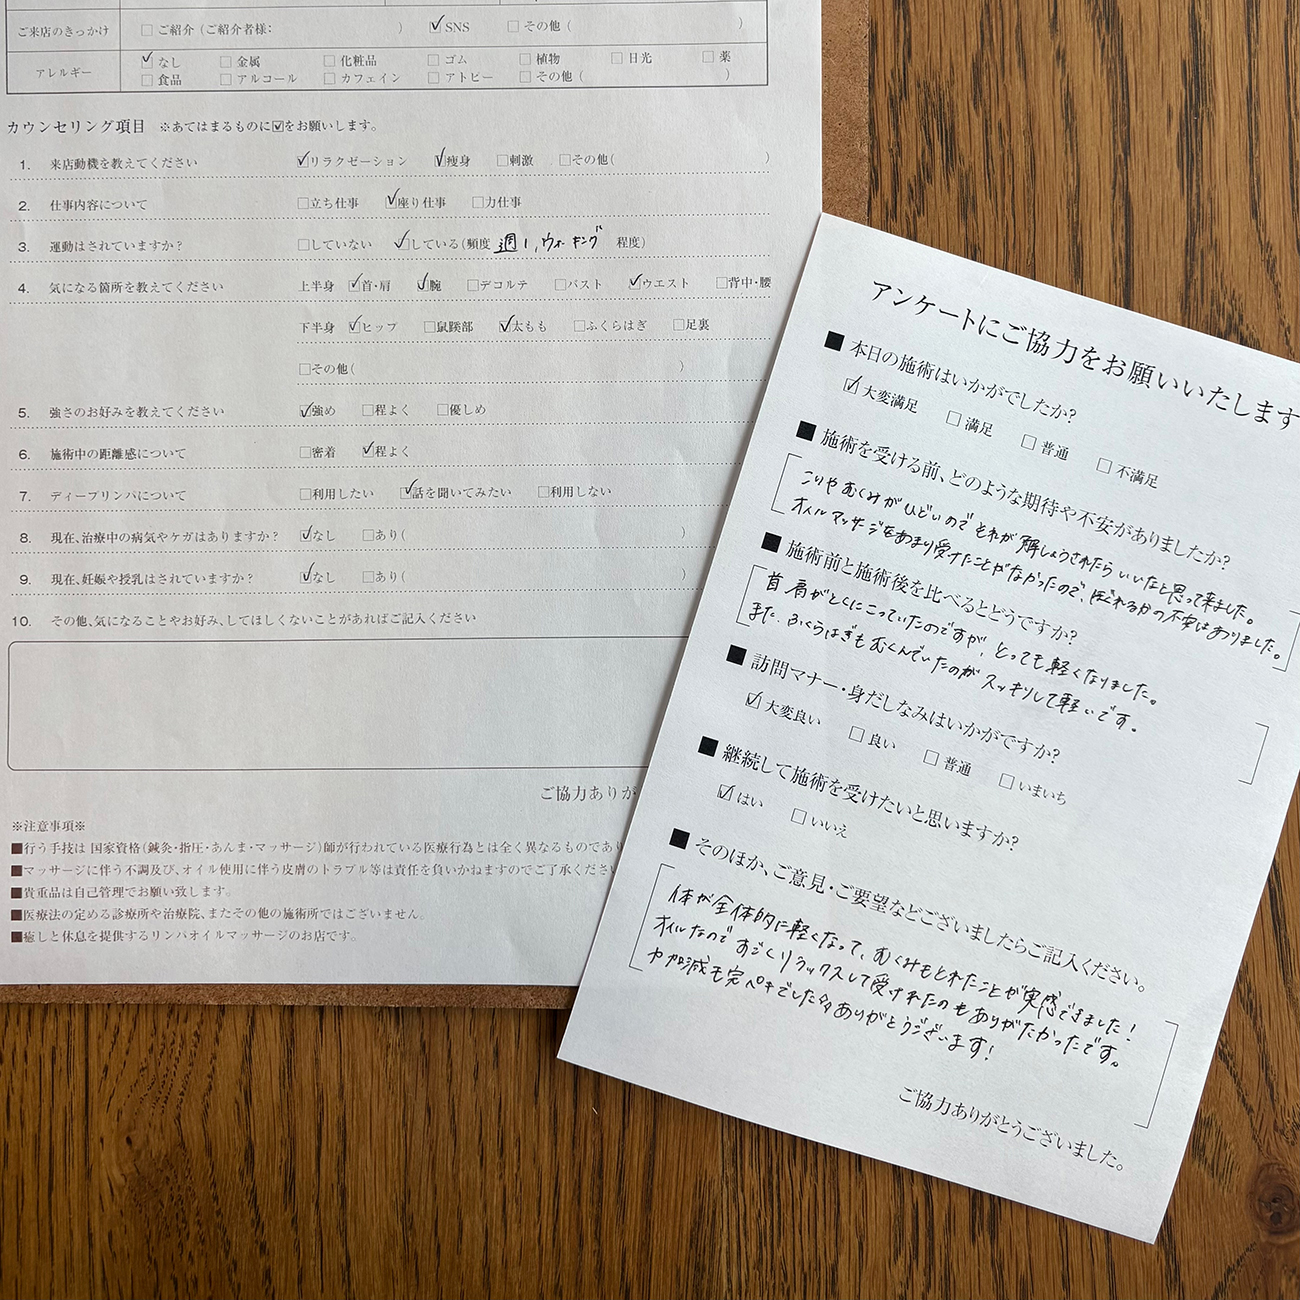 ご来店のきっかけ □ご紹介(ご紹介者様: ) ☑SNS □その他( )
アレルギー ☑なし □金属 □化粧品 □ゴム □植物 □日光 □薬
□食品 □アルコール □カフェイン □アトピー □その他( )
カウンセリング項目 ※あてはまるものに☑をお願いします。
1. 来店動機を教えてください ☑リラクゼーション ☑痩身 □刺激 □その他( )
2. 仕事内容について □立ち仕事 ☑座り仕事 □力仕事
3. 運動はされていますか? □していない ☑している(頻度 週1,ウォーキング 程度)
4. 気になる箇所を教えてください 上半身 ☑首・肩 ☑腕 □デコルテ □バスト ☑ウエスト □背中・腰
下半身 ☑ヒップ □鼠蹊部 ☑太もも □ふくらはぎ □足裏
□その他( )
5. 強さのお好みを教えてください ☑強め □程よく □優しめ
6. 施術中の距離感について □密着 ☑程よく
7. ディープリンパについて □利用したい ☑話を聞いてみたい □利用しない
8. 現在、治療中の病気やケガはありますか? ☑なし □あり( )
9. 現在、妊娠や授乳はされていますか? ☑なし □あり( )
10. その他、気になることやお好み、してほしくないことがあればご記入ください
ご協力ありが
※注意事項※
■行う手技は 国家資格(鍼灸・指圧・あんま・マッサージ)師が行われている医療行為とは全く異なるものであり
■マッサージに伴う不調及び、オイル使用に伴う皮膚のトラブル等は責任を負いかねますのでご了承ください
■貴重品は自己管理でお願い致します。
■医療法の定める診療所や治療院、またその他の施術所ではございません。
■癒しと休息を提供するリンパオイルマッサージのお店です。
アンケートにご協力をお願いいたします
■ 本日の施術はいかがでしたか?
☑大変満足 □満足 □普通 □不満足
■ 施術を受ける前、どのような期待や不安がありましたか?
こりやむくみがひどいのでそれが解しょうされたらいいなと思って来ました。
オイルマッサージをあまり受けたことがなかったので、ほぐれるかの不安はありました。
■ 施術前と施術後を比べるとどうですか?
首肩がとくにこっていたのですが、とっても軽くなりました。
また、ふくらはぎもむくんでいたのがスッキリして軽いです。
■ 訪問マナー・身だしなみはいかがですか?
☑大変良い □良い □普通 □いまいち
■ 継続して施術を受けたいと思いますか?
☑はい □いいえ
■ そのほか、ご意見・ご要望などございましたらご記入ください。
体が全体的に軽くなって、むくみもとれたことが実感できました!
オイルなのですごくリラックスして受けれたのもありがたかったです。
力加減も完ペキでした ありがとうございます!
ご協力ありがとうございました。